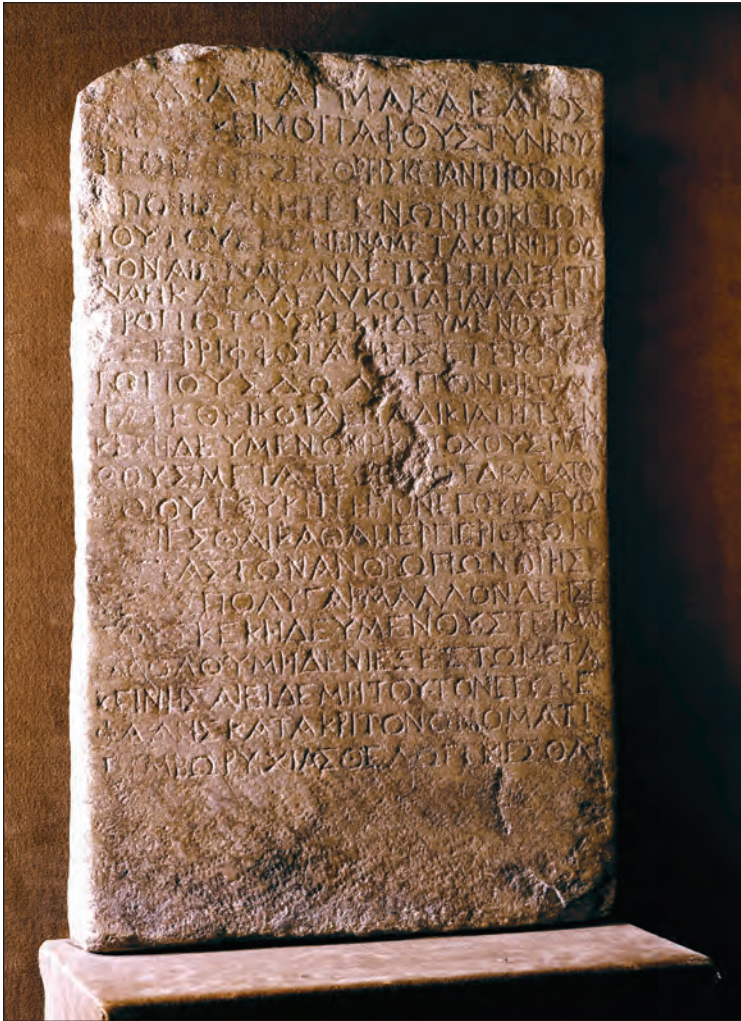 ΔΙΑΤΑΓΜΑ ΚΑΙΣΑΡΟΣ
ΑΡΕΣΚΕΙ ΜΟΙ ΤΑΦΟΥΣ ΤΥΝΒΟΥΣ
ΤΕ ΟΙΤΙΝΕΣ ΕΙΣ ΘΡΗΣΚΕΙΑΝ ΠΡΟΓΟΝΩΝ
ΕΠΟΙΗΣΑΝ Η ΤΕΚΝΩΝ Η ΟΙΚΕΙΩΝ
ΤΟΥΤΟΥΣ ΜΕΝΕΙΝ ΑΜΕΤΑΚΕΙΝΗΤΟΥΣ
ΤΟΝ ΑΙΩΝΑ ΕΑΝ ΔΕ ΤΙΣ ΕΠΙΔΙΞΗ ΤΙ
ΝΑ Η ΚΑΤΑΛΕΛΥΚΟΤΑ Η ΑΛΛΩ ΤΙΝΙ
ΤΡΟΠΩ ΤΟΥΣ ΚΕΚΗΔΕΥΜΕΝΟΥΣ
ΕΞΕΡΡΙΦΦΟΤΑ Η ΕΙΣ ΕΤΕΡΟΥΣ
ΤΟΠΟΥΣ ΔΩΛΩ ΠΟΝΗΡΩ ΜΕ
ΤΑΤΕΘΙΚΟΤΑ ΕΠ ΑΔΙΚΙΑ ΤΗ ΤΩΝ
ΚΕΚΗΔΕΥΜΕΝΩΝ Η ΚΑΤΟΧΟΥΣ Η ΛΙ
ΘΟΥΣ ΜΕΤΑΤΕΘΕΙΚΟΤΑ ΚΑΤΑ ΤΟΥ
ΤΟΙΟΥΤΟΥ ΚΡΙΤΗΡΙΟΝ ΕΓΩ ΚΕΛΕΥΩ
ΓΕΝΕΣΘΑΙ ΚΑΘΑΠΕΡ ΠΕΡΙ ΘΕΩΝ Ε
ΙΣ ΤΑΣ ΤΩΝ ΑΝΘΡΩΠΩΝ ΘΡΗΣ
ΚΙΑΣ ΠΟΛΥ ΓΑΡ ΜΑΛΛΟΝ ΔΕΗΣΕΙ
ΤΟΥΣ ΚΕΚΗΔΕΥΜΕΝΟΥΣ ΤΕΙΜΑΝ
ΚΑΘΟΛΟΥ ΜΗΔΕΝΙ ΕΞΕΣΤΩ ΜΕΤΑ
ΚΕΙΝΗΣΑΙ ΕΙ ΔΕ ΜΗ ΤΟΥΤΟΝ ΕΓΩ ΚΕ
ΦΑΛΗΣ ΚΑΤΑΚΡΙΤΟΝ ΟΝΟΜΑΤΙ
ΤΥΜΒΩΡΥΧΙΑΣ ΘΕΛΩ ΓΕΝΕΣΘΑΙ